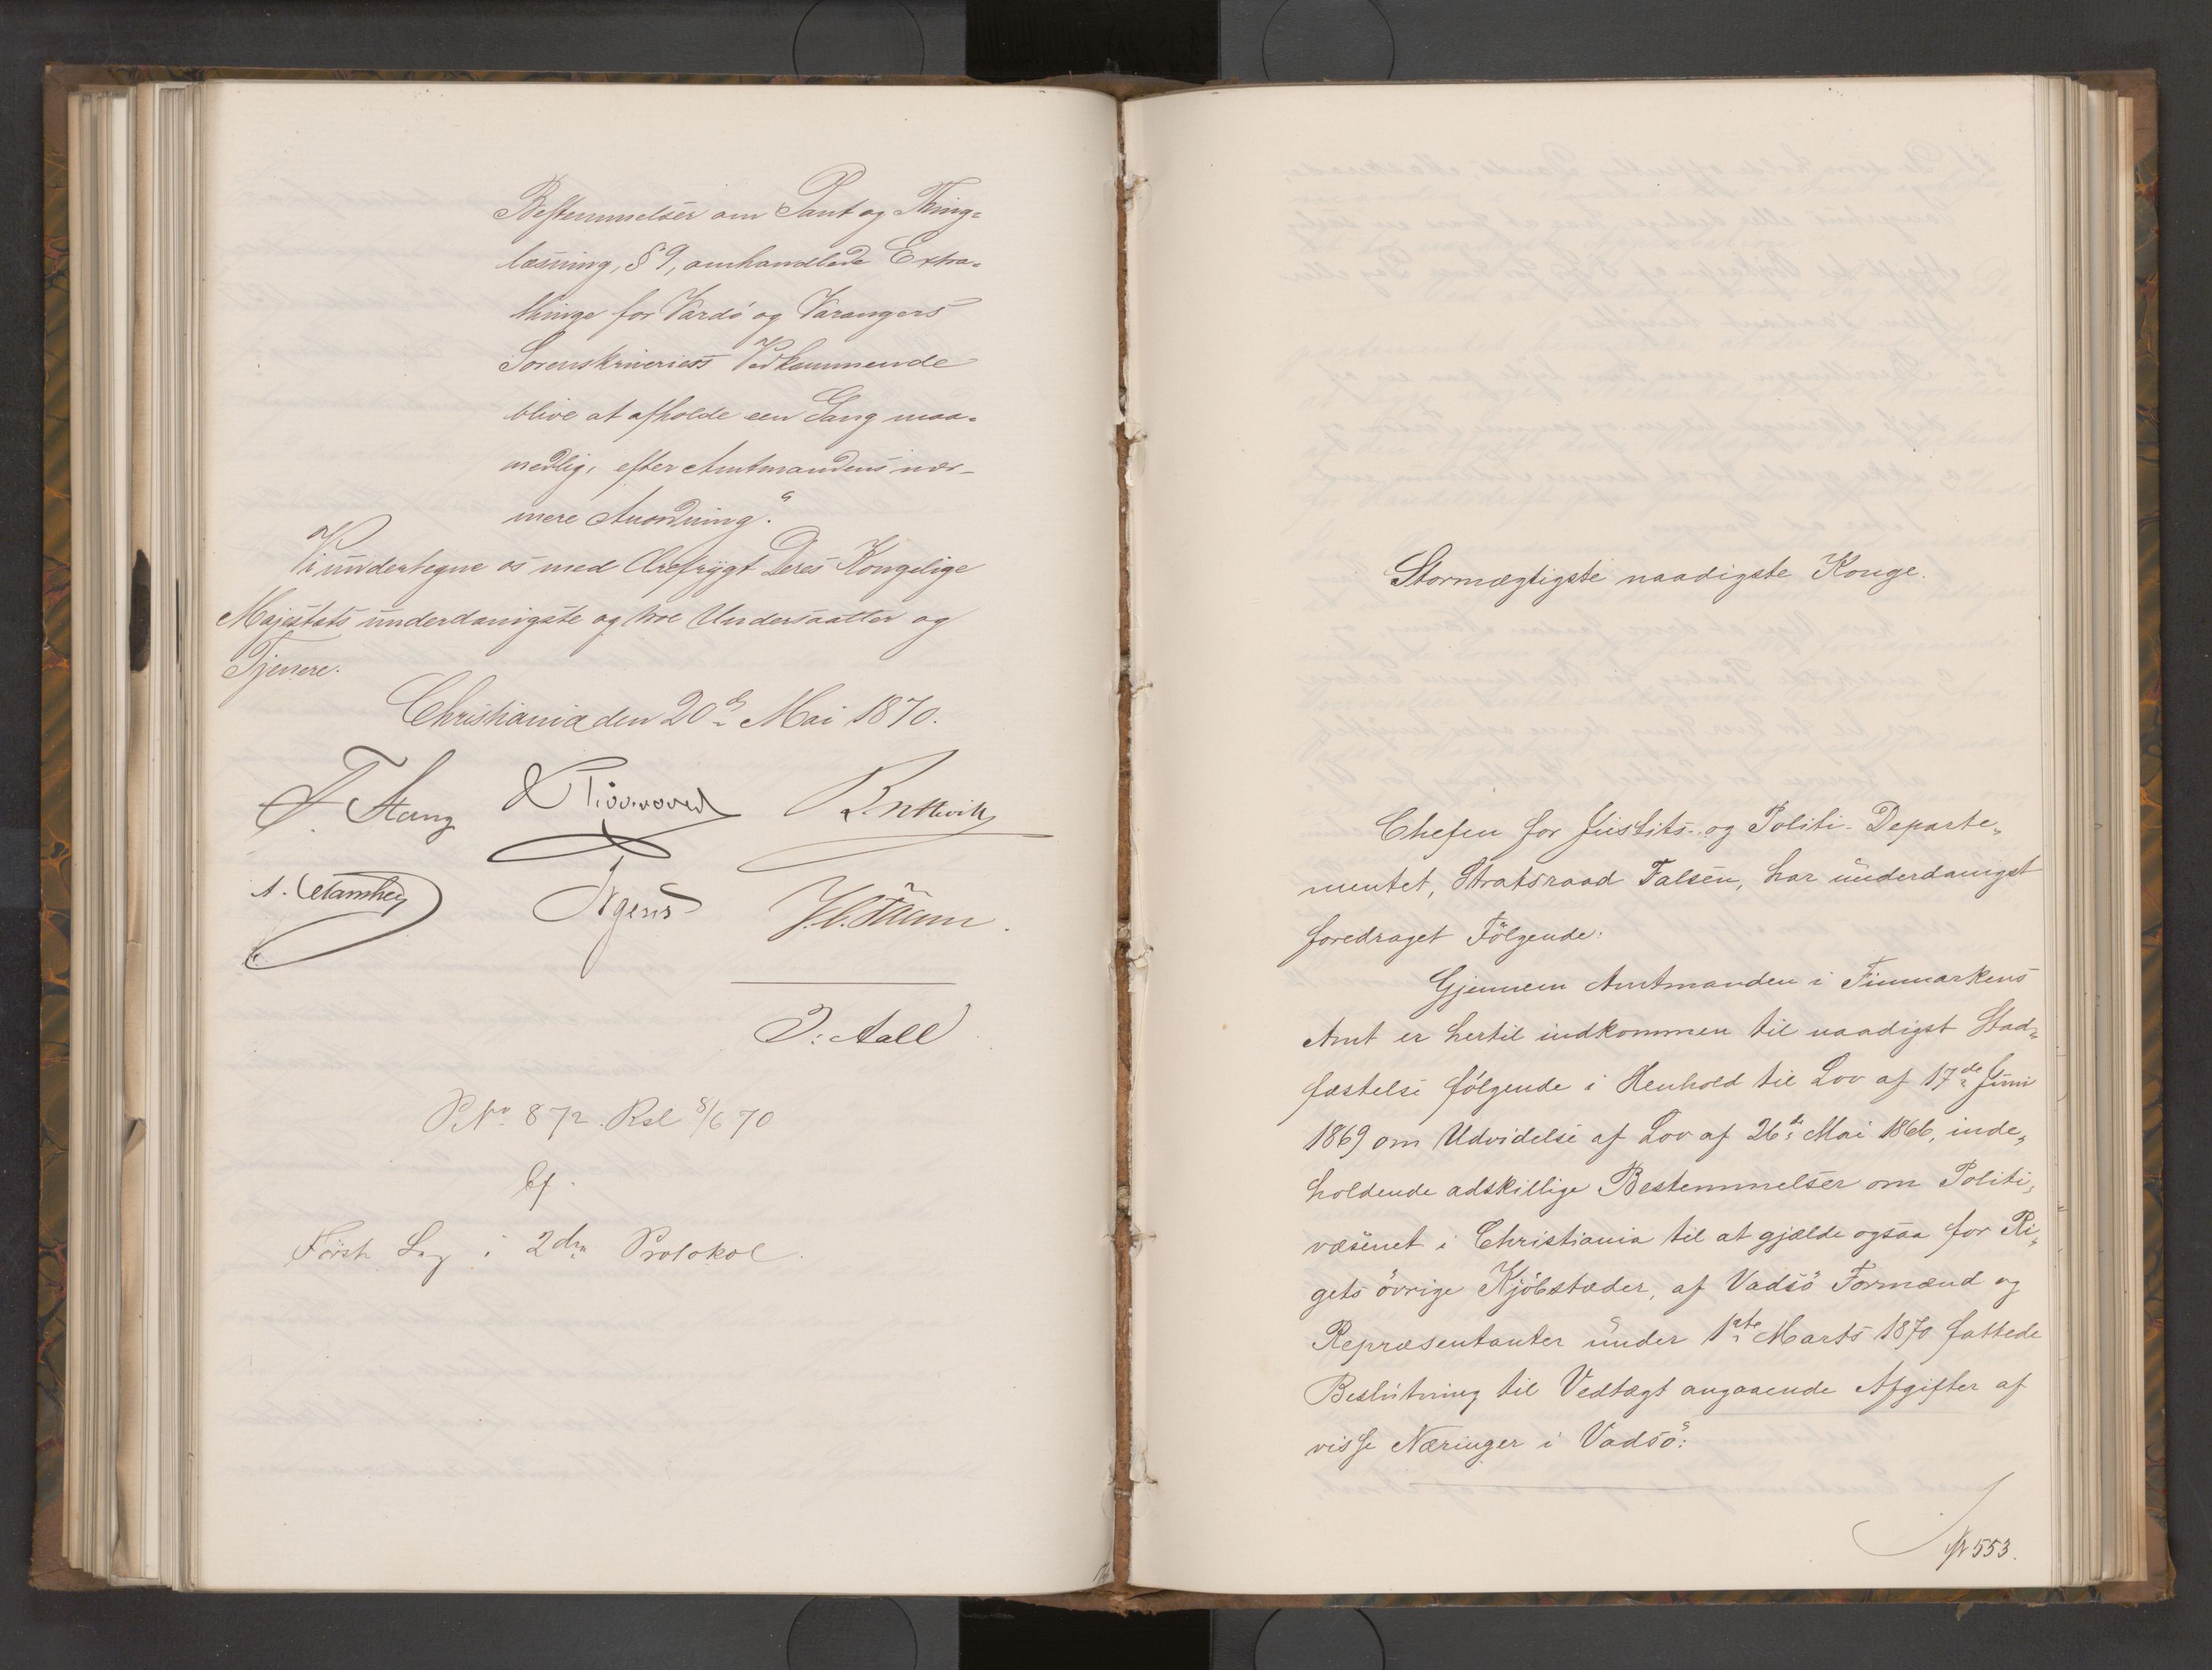 Bestemmelser om Pant og Thing-
læsning, § 9, omhandlede Extra-
thinge for Vardö og Varangers
Sorenskriveries Vedkommende
blive at afholde een Gang maa-
nedlig, efter Amtmandens nær-
mere Anordning."
Vi undertegne os med Ærefrygt Deres Kongelige
Majestæts underdanigste og troe Undersaatter og
Tjenere.
Christiania den 20de Mai 1870.
F. Stang
Bretteville
Irgens
J. Aall
P.No 872. Rsl 8/6 70
Forste Lag i 2den Protokol.
Stormægtigste naadigste Konge.
Chefen for Justits- og Politi-Departe-
mentet, Statsraad Falsen, har underdanigst
foredraget Følgende:
Gjennem Amtmanden i Finmarkens
Amt er hertil indkommen til naadigst Stad-
fæstelse følgende i Henhold til Lov af 17de Juni
1869 om Udvidelse af Lov af 26de Mai 1866, inde-
holdende adskillige Bestemmelser om Politi-
væsenet i Christiania til at gjælde ogsaa for Ri-
gets övrige Kjöbstæder, af Vadsö Formænd og
Repræsentanter under 1ste Marts 1870 fattede
Beslutning til Vedtægt angaaende Afgifter af
visse Næringer i Vadsö:
553.